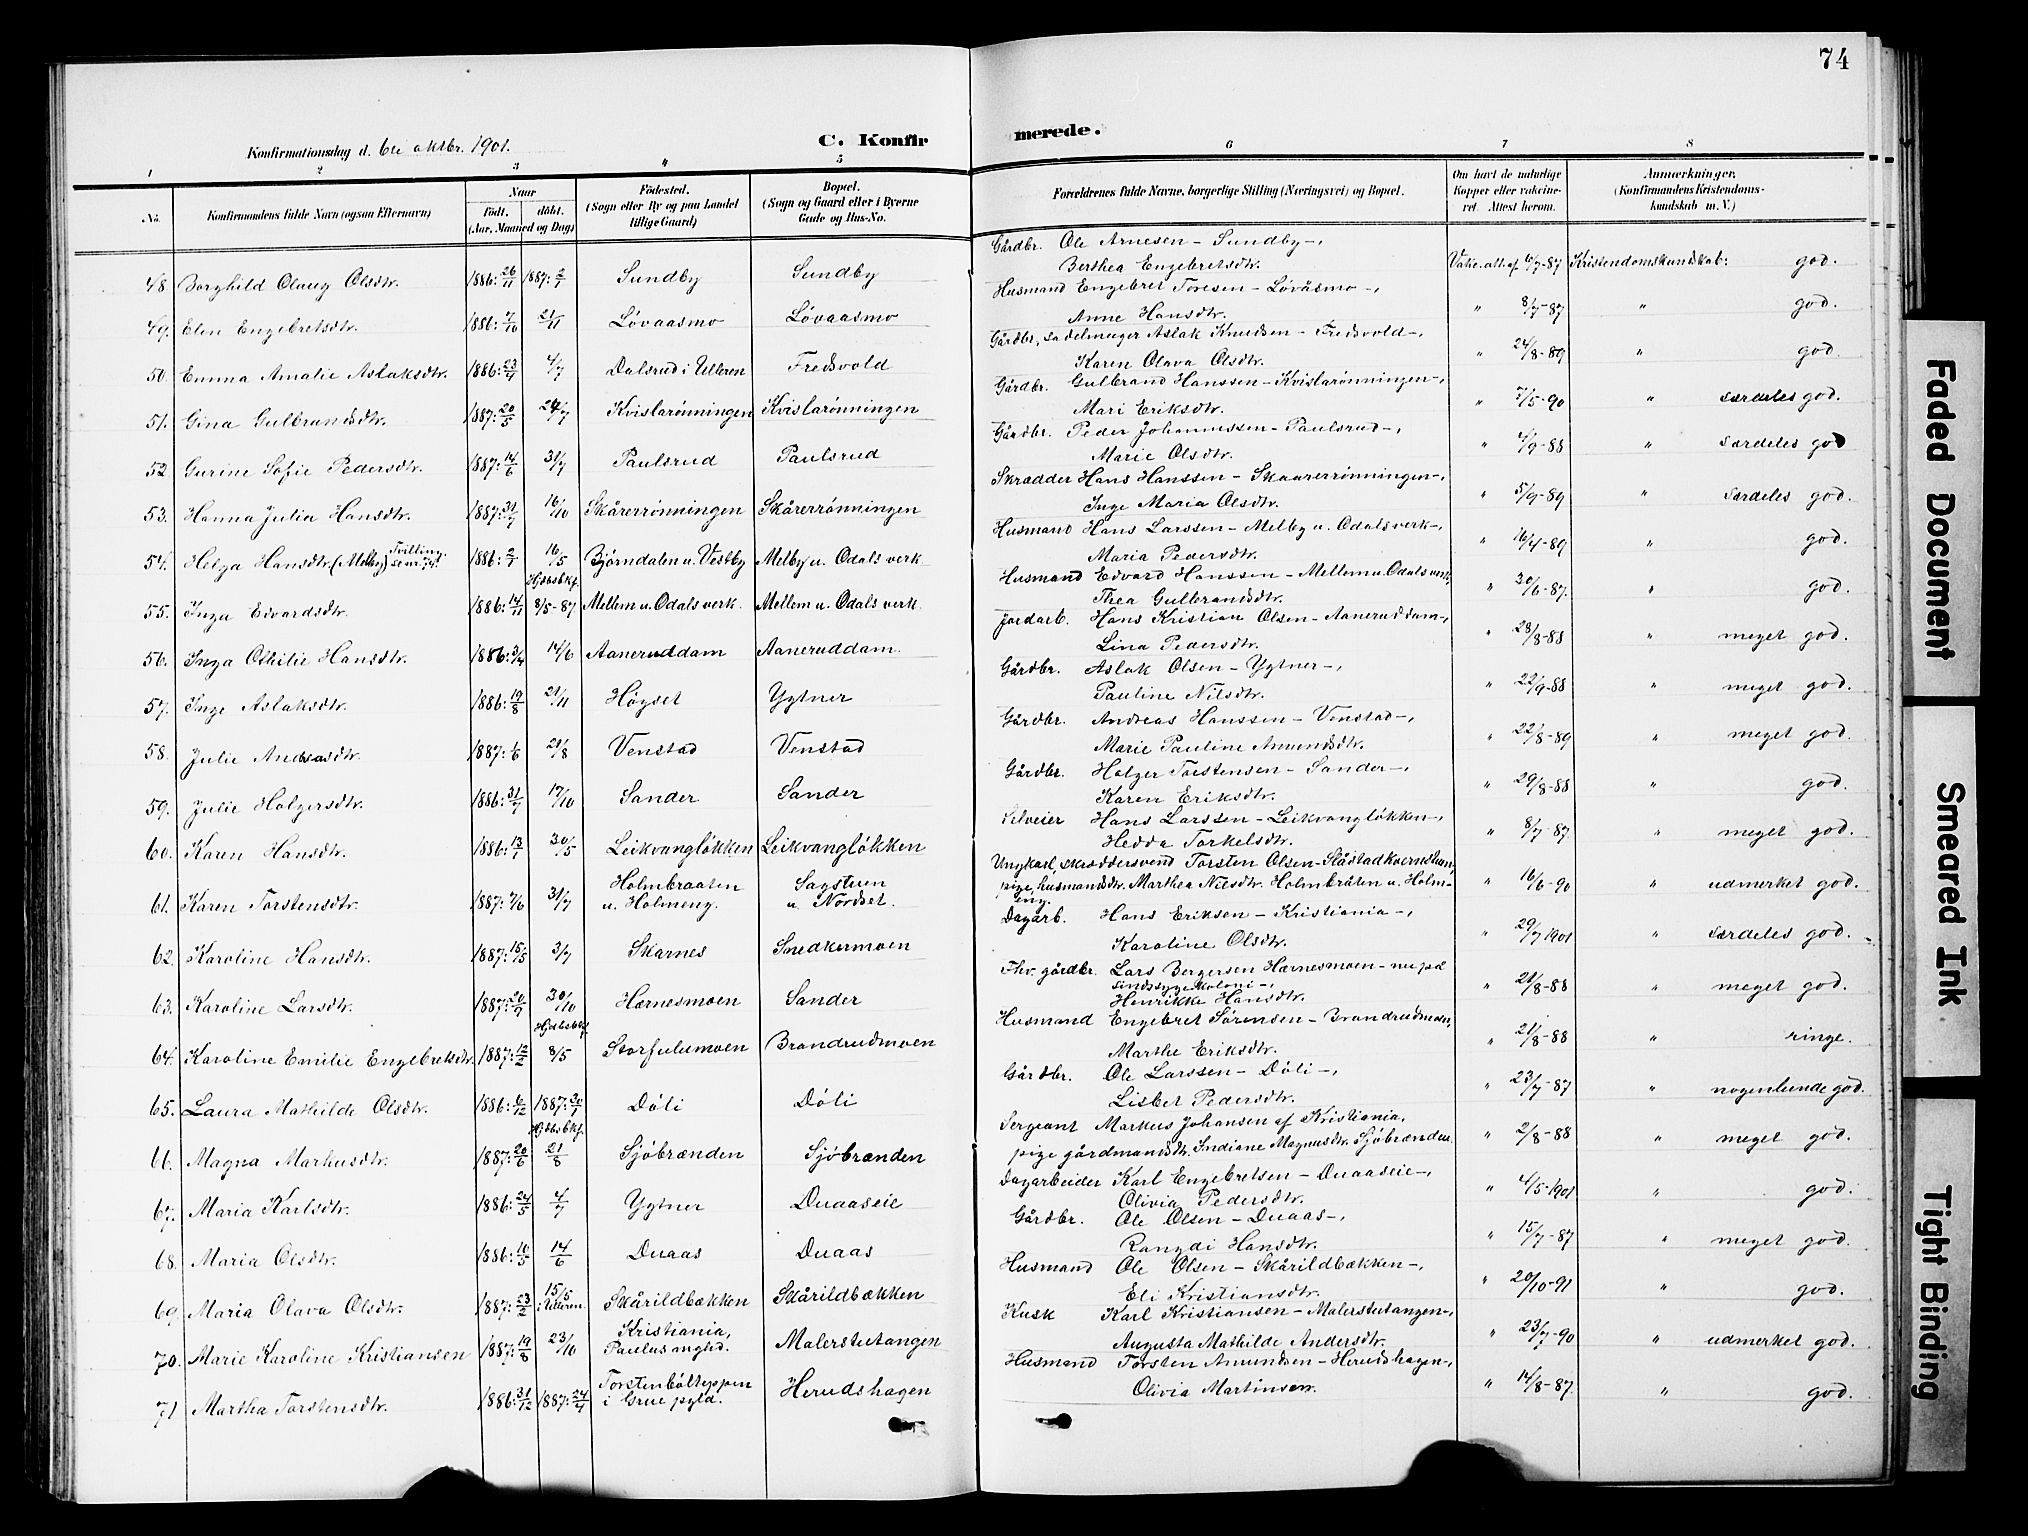 74
Konfirmationsdag d. 6te oktbr. 1901.
C. Konfirmerede.
1 2 3 4 5 6 7 8
No. Konfirmandens fulde Navn (ogsaa Efternavn) Naar födt. döbt. (Aar, Maaned og Dag) Födested. (Sogn eller By og paa Landet tillige Gaard) Bopæl. (Sogn og Gaard eller i Byerne Gade og Hus-No. Forældrenes fulde Navne, borgerlige Stilling (Næringsvei) og Bopæl. Om havt de naturlige Kopper eller vakcineret. Attest herom. Anmærkninger. (Konfirmandens Kristendomskundskab m. V.)
48. Borghild Olaug Olsdtr. 1886: 26/11 1887: 2/1 Sundby Sundby Gårdbr. Ole Arnesen – Sundby –, Berthea Engebretsdtr. Vakc. att. af 6/7-87 Kristendomskundskab: god.
49. Elin Engebretsdtr. 1886: 7/10 21/11 Løvaasmo Løvaasmo Husmand Engebret Toresen – Løvåsmo –, Anne Hansdtr. " 8/7-87 " god.
50. Emma Amalie Aslaksdtr. 1886: 23/4 4/7 Dalsrud i Ulleren Fredsvold Gårdbr., sadelmager Aslak Knudsen – Fredsvold –, Karen Olava Olsdtr. " 24/8-89 " god.
51. Gina Gulbrandsdtr. 1887: 20/5 24/7 Kvislarønningen Kvislarønningen Gårdbr. Gulbrand Hanssen – Kvislarønningen –, Mari Eriksdtr. " 7/5-90 " særdeles god.
52. Gurine Sofie Pedersdtr. 1887: 14/6 31/7 Paulsrud Paulsrud Gårdbr. Peder Johannessen – Paulsrud –, Marie Olsdtr. " 4/9-88 " særdeles god
53. Hanna Julia Hansdtr. 1887: 31/7 16/10 Skårerrønningen Skårerrønningen Skrædder Hans Hanssen – Skaarerrønningen –, Inge Maria Olsdtr. " 5/9-89 " særdeles god.
54. Helga Hansdtr. (Melby) Tvilling 1886: 2/1 16/5 Bjørndalen u. Vestby Melby u. Odals verk Husmand Hans Larssen – Melby u. Odals verk –, Maria Pedersdtr. " 16/4-89 " god.
55. Inga Edvardsdtr. 1886: 14/11 Hjdbsbkf. 8/5-87 Mellem u. Odals verk. Mellem u. Odals verk. Husmand Edvard Hanssen – Mellem u. Odals verk, Thea Gulbrandsdtr. " 30/6-87. " god.
56. Inga Othilie Hansdtr. 1886: 3/4 14/6 Aaneruddam Aaneruddam. Jordarb. Hans Kristian Olsen – Aaneruddam –, Lina Pedersdtr. " 28/8-88 " meget god.
57. Inge Aslaksdtr. 1886: 19/8 21/11 Høgset Ygtner Gårdbr. Aslak Olsen – Ygtner –, Pauline Nilsdtr. " 22/9-88 " meget god.
58. Julie Andreasdtr. 1887: 1/6 21/8 Venstad Venstad Gårdbr. Andreas Hanssen – Venstad –, Marie Pauline Amundsdtr. " 22/8-89 " meget god.
59. Julie Holgersdtr. 1886: 31/7 17/10 Sander Sander Gårdbr. Holger Torstensen – Sander –, Karen Eriksdtr. " 29/8-88 " god.
60. Karen Hansdtr. 1886: 13/1 30/5 Leikvangløkken Leikvangløkken Selveier Hans Larssen – Leikvangløkken –, Hedda Torkelsdtr. " 8/7-87 " meget god.
61. Karen Torstensdtr. 1887: 7/6 31/7 Holmbraaten u. Holmeng. Sagstuen u. Nordset. Ungkarl, skræddersvend Torsten Olsen – Slåstad pige, husmandsdtr. Marthea Nilsdtr. Holmbråten u. Holmeng. " 16/6-90 " udmerket god.
62. Karoline Hansdtr. 1887: 15/5 3/7 Skarnes Snedkermoen Dagarb. Hans Eriksen – Kristiania –, Karoline Olsdtr. " 29/7 1901 " særdeles god.
63. Karoline Larsdtr. 1887: 20/9 30/10 Hærnesmoen Sander Fhv. gårdbr. Lars Bergersen Hærnesmoen – nu på Sindssygekoloni –, Henrikke Hansdtr. " 21/8-88 " meget god.
64. Karoline Emilie Engebretsdtr. 1887: 12/2 Hjdbsbkf. 8/5 Brandrudmoen Husmand Engebret Sørensen – Brandrudmoen, Marthe Eriksdtr. " 21/8-88 " ringe.
65. Laura Mathilde Olsdtr. 1886: 6/12 1887: 30/1 Døli Døli Gårdbr. Ole Larssen – Døli –, Lisbet Pedersdtr. " 23/7-87 " nogenlunde god.
66. Magna Markusdtr. 1887: 20/6 Hjdbsbkf. 21/8 Sjöbrænden Sjöbrænden Sergeant Markus Johansen af Kristiania, pige gårdmandsdtr. Indiane Magnusdtr. Sjöbrænden. " 2/8-88 " meget god.
67. Maria Karlsdtr. 1886: 24/5 4/7 Ygtner Duaaseie Dagarbeider Karl Engebretsen – Duaaseie –, Olivia Pedersdtr. " 4/5-1901 " god.
68. Maria Olsdtr. 1886: 10/5 14/6 Duaas Duaas Gårdbr. Ole Olsen – Duaas –, Rangdi Hansdtr. " 15/7-87 " meget god.
69. Maria Olava Olsdtr. 1887: 23/2 15/5 i Ulleren Skårildbækken Skårildbækken Husmand Ole Olsen – Skårildbækken –, Eli Kristiansdtr. " 20/10-91 " god.
70. Marie Karoline Kristiansen 1887: 19/8 23/10 Kristiania, Paulus mghd. Malerstutangen Kusk Karl Kristiansen – Malerstutangen –, Augusta Mathilde Andersdtr. " 23/7-90 " udmerket god.
71 Martha Torstensdtr. 1886: 31/12 1887: 24/4 Torstenbölteppen i Grue pgld. Herudshagen Husmand Torsten Amundsen – Herudshagen –, Olivia Martinsen. " 14/8-87. " god.
Faded Document
Smeared Ink
Tight Binding